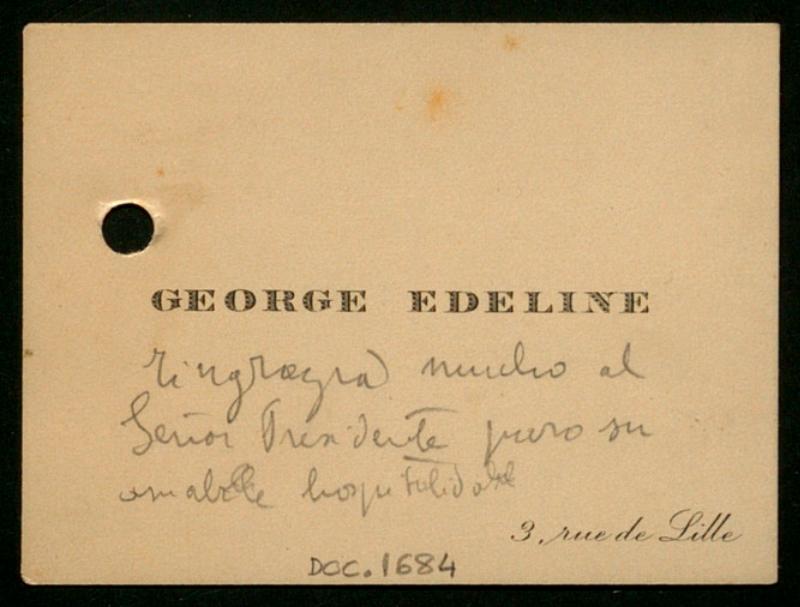 GEORGE EDELINE
ringrazia mucho al
Señor Presidente puro su
amabile hospitalidad
3, rue de Lille
DOC. 1684